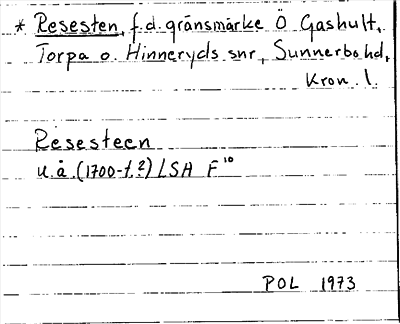 * Resesten, f.d. gränsmärke Ö Gashult,
Torpa o. Hinneryds snr, Sunnerbo hd,
Kron. l.
Resesteen
u.å. (1700-t.?) LSA F¹⁰
POL 1973